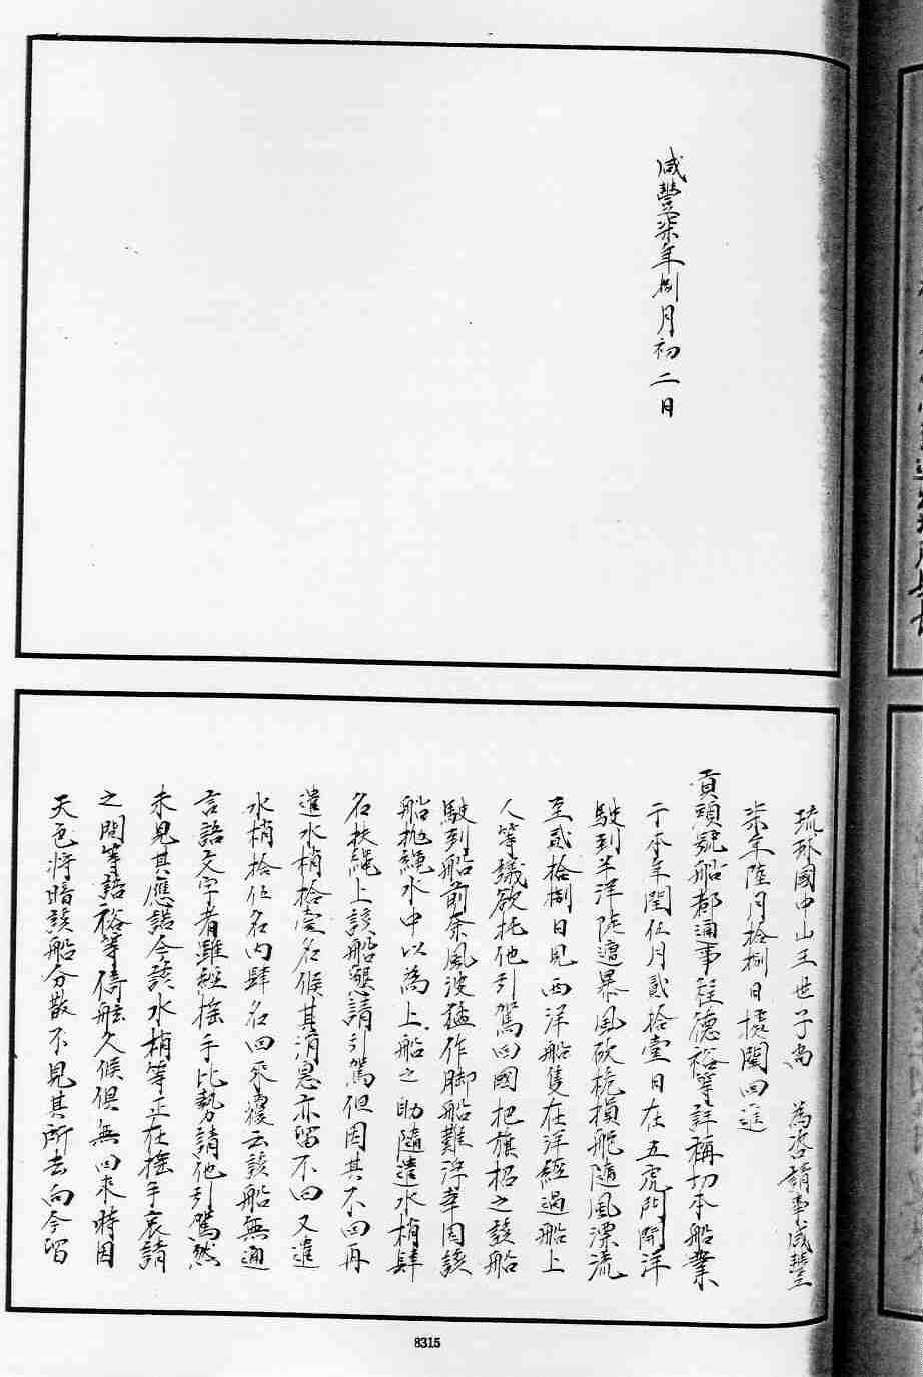 咸豐柒年捌月初二日
琉球國中山王世子尚 為咨請事咸豐
柒年陸月拾捌日據闔回進
貢頭號船都通事 德裕等詳稱切本船業
于本年閏伍月貳拾壹日在五虎門開洋
駛到半洋陡遭暴風砍桅損舵隨風漂流
至貳拾捌日見西洋船隻在洋經過船上
人等議欲托他引駕回國把旗招之該船
駛到船前奈風波猛作脚船難浮幸因該
船拋繩水中以為上船之助隨遣水梢肆
名扶繩上該船懇請引駕但因其不回再
遣水梢拾壹名候其消息亦留不回又遣
水梢拾伍名內肆名回來覆云該船無通
言語文字者雖經搖手比勢請他引駕然
未見其應諾今該水梢等正在搖手哀請
之間等語裕等倚舷久候俱無回來時因
天色將暗該船分散不見其所去向今留
8315